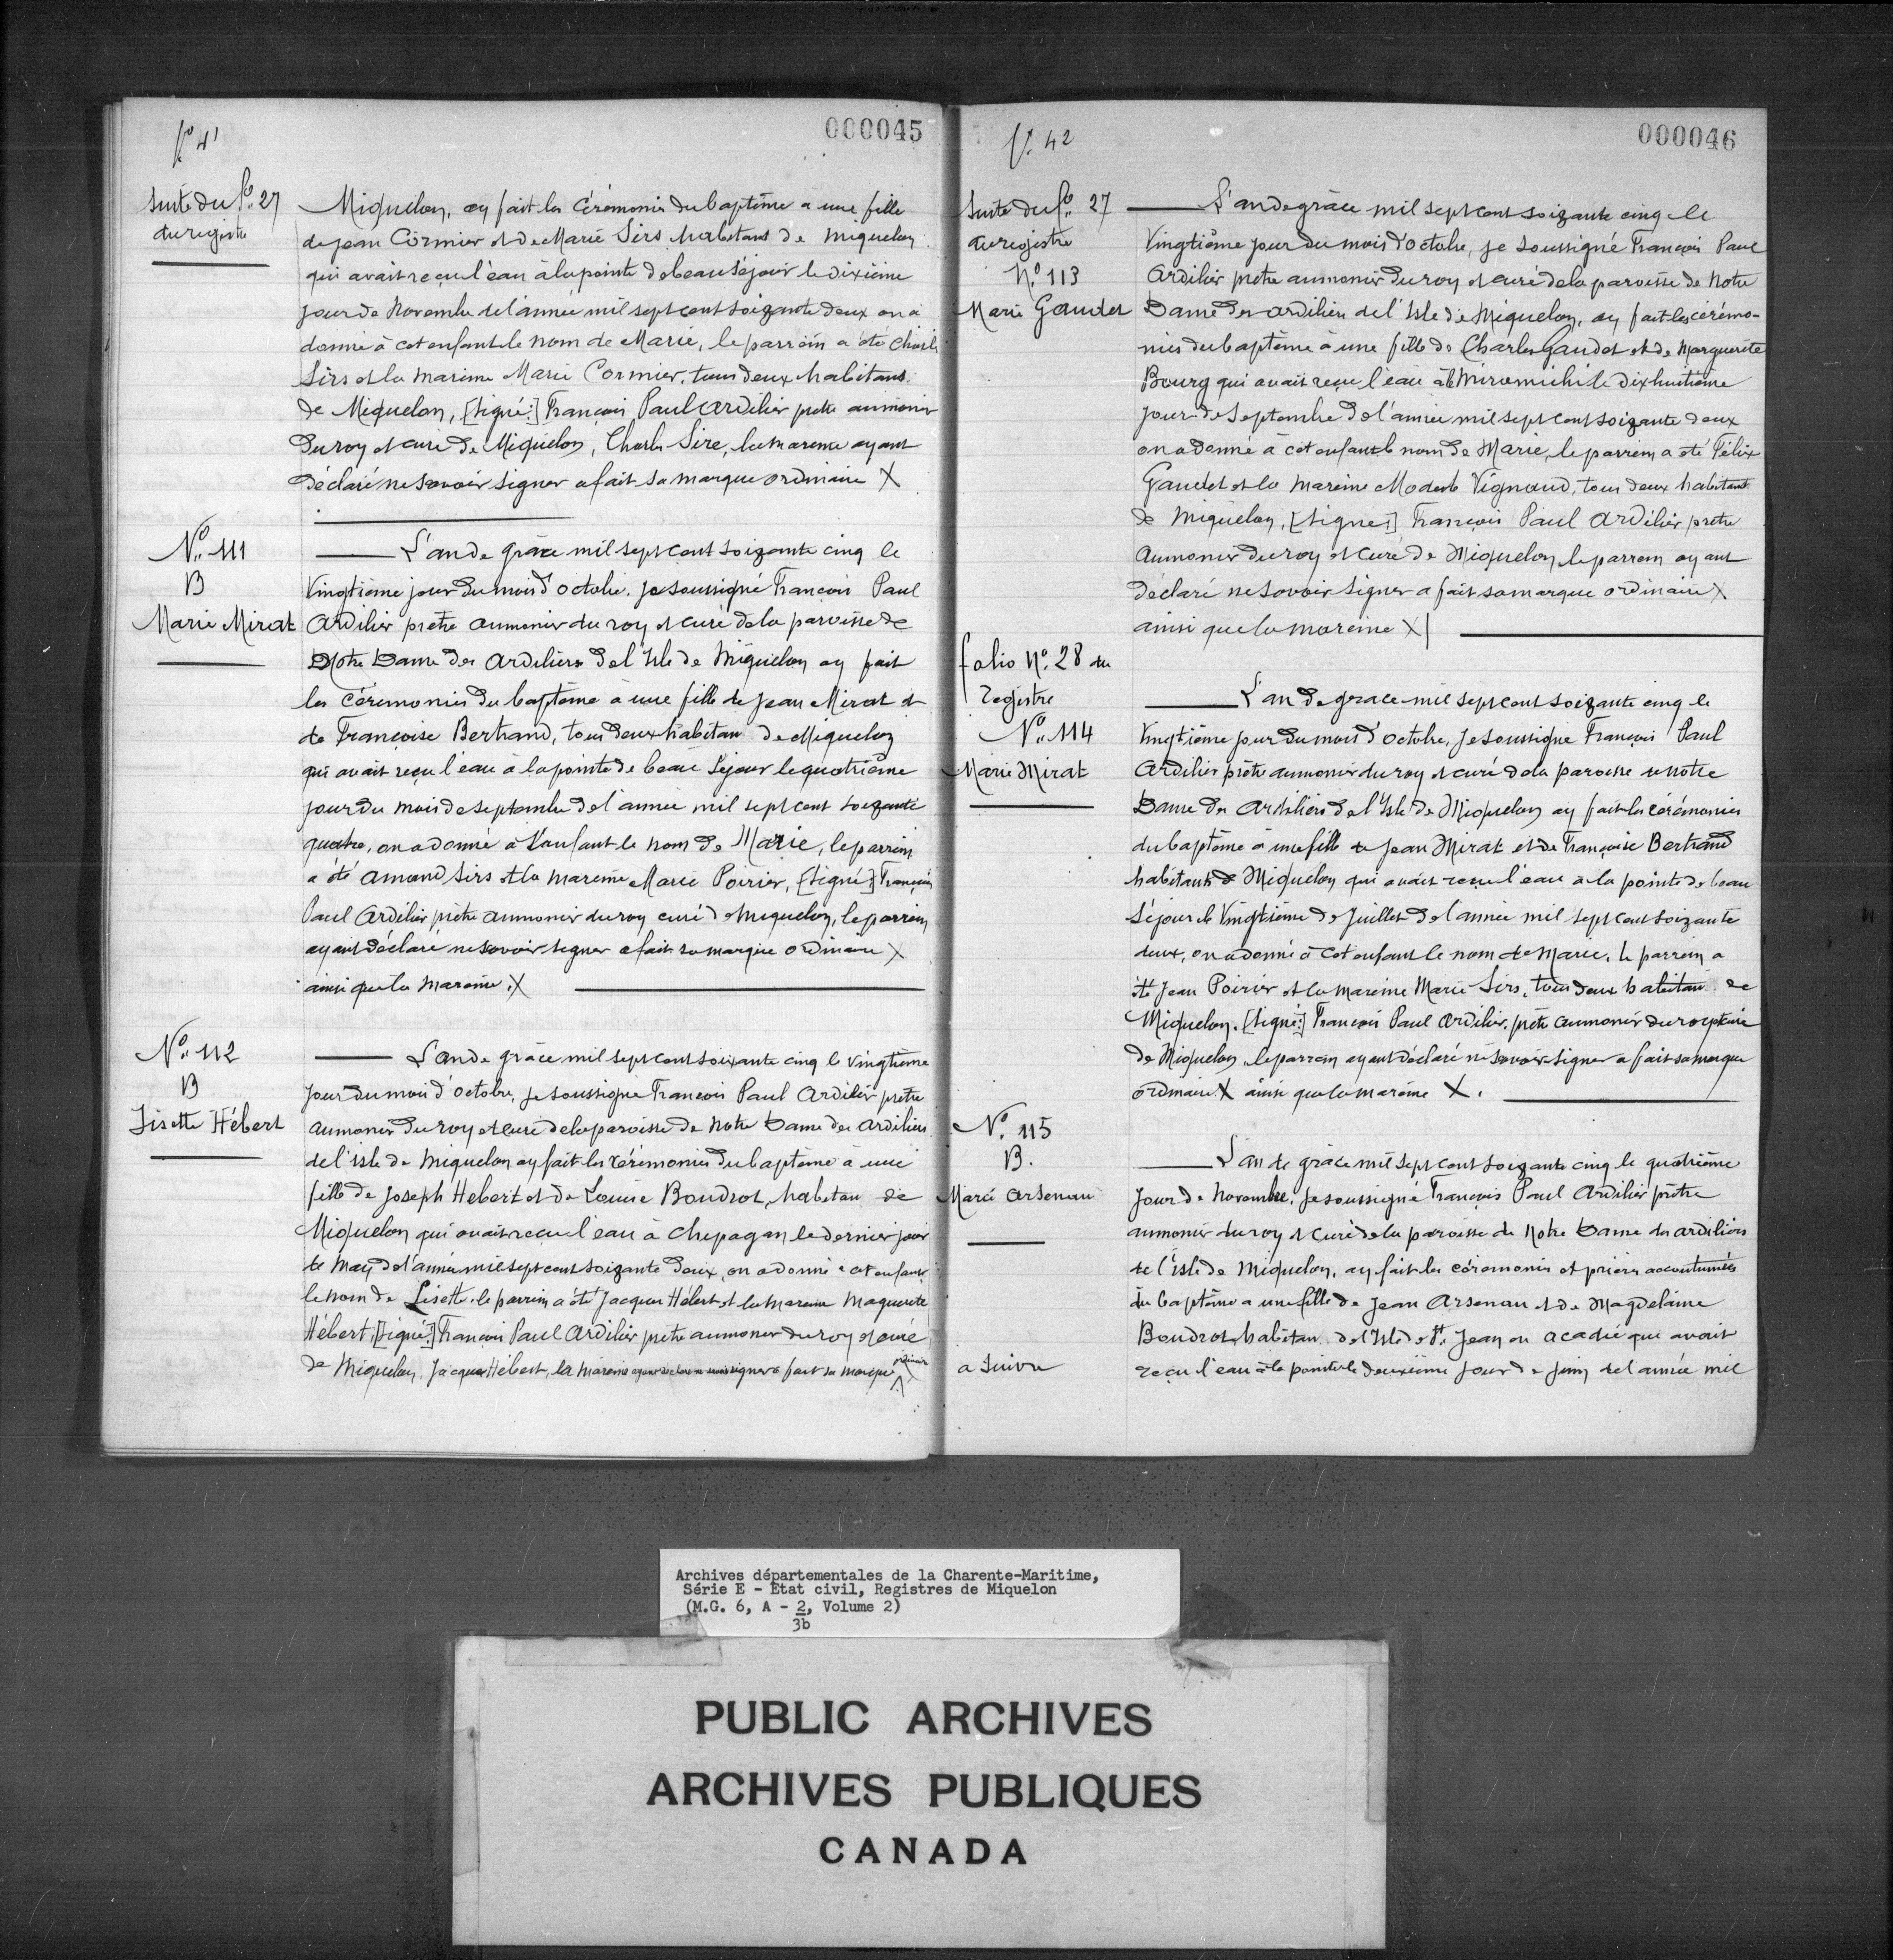 fo 41
000045
Suite du fo. 27
du registre
Miquelon, ay fait les Cérémonies du baptême a une fille
de jean Cormier et de Marie Sirs habitans de Miquelon
qui avait reçu l'eau à la pointe de beau séjour le dixième
jour de Novembre de l'année mil sept cent soixante deux on a
donné à cet enfant le nom de Marie, le parrain a été Charle
Sirs et la mareine Marie Cormier, tous deux habitans
de Miquelon, [Signé:] François Paul Ardilier pretre aumonier
du roy et curé de Miquelon, Charle Sire, la mareine ayant
déclaré ne savoir signer a fait sa marque ordinaire X
No. 111
B
Marie Mirat
L'an de grâce mil sept cent soizante cinq le
vingtième jour du mois d'octobre. je soussigné François Paul
Ardilier pretre aumonier du roy et curé de la paroisse de
Notre Dame des Ardiliers de l'Isle de Miquelon ay fait
les cérémonies du baptême a une fille de Jean Mirat et
de Françoise Bertrand, tous deux habitan de Miquelon
qui avait reçu l'eau a la pointe de beau séjour le quatrième
jour du mois de septembre de l'année mil sept cent soizante
quatre, on a donné a l'enfant le nom de Marie, le parrein
a été Amand Sirs et la mareine Marie Poirier, [Signé:] François
Paul Ardilier prêtre aumonier du roy curé de Miquelon, le parrein
ayant déclaré ne savoir signer a fait sa marque ordinaire X
ainsi que la mareine. X
No. 112
B
Lisette Hébert
L'an de grâce mil sept cent soixante cinq le vingtième
jour du mois d'octobre, je soussigné François Paul Ardilier pretre
aumonier du roy et curé de la paroisse de Notre Dame des Ardiliers
de l'isle de Miquelon ay fait les cérémonies du baptême a une
fille de Joseph Hébert et de Louise Boudrot, habitan de
Miquelon qui avait reçu l'eau à Chepagan le dernier jour
de May de l'année mil sept cent soizante deux, on a donné a cet enfant
le nom de Lisette. le parrein a été Jacques Hébert et la mareine Maguerite
Hébert, [Signé:] François Paul Ardilier pretre aumonier du roy et curé
de Miquelon, Jacques Hébert, la mareine ayant déclaré ne savoir signer a fait sa marque ordinaire X
fo. 42
000046
Suite du fo. 27
du registre
No. 113
Marie Gaudet
L'an de grâce mil sept cent soizante cinq le
vingtième jour du mois d'octobre, je soussigné François Paul
Ardilier pretre aumonier du roy et curé de la paroisse de Notre
Dame des Ardiliers de l'Isle de Miquelon, ay fait les cérémo-
nies du baptême à une fille de Charles Gaudet et de Marguerite
Bourg qui avait reçu l'eau à Miramichi le dixhuitième
jour de Septembre de l'année mil sept cent soizante deux
on a donné à cet enfant le nom de Marie, le parrein a été Félix
Gaudet et la mareine Modeste Vignaud, tous deux habitant
de Miquelon, [Signé:] François Paul Ardilier pretre
aumonier du roy et curé de Miquelon, le parrein ayant
déclaré ne savoir signer a fait sa marque ordinaire X
ainsi que la mareine X
folio No. 28 du
registre
No. 114
Marie Mirat
L'an de grace mil sept cent soizante cinq le
vingtième jour du mois d'octobre, je soussigné François Paul
Ardilier prêtre aumonier du roy et curé de la paroisse de Notre
Dame des Ardiliers de l'Isle de Miquelon ay fait les cérémonies
du baptême à une fille de Jean Mirat et de Françoise Bertrand
habitants de Miquelon qui avait reçu l'eau a la pointe de beau
séjour le vingtième de Juillet de l'année mil sept cent soizante
deux, on a donné à cet enfant le nom de Marie, le parrein a
été Jean Poirier et la mareine Marie Sirs, tous deux habitan de
Miquelon. [Signé:] François Paul Ardilier, prêtre aumonier du roy et curé
de Miquelon le parrein ayant déclaré ne savoir signer a fait sa marque
ordinaire X ainsi que la mareine X.
No. 115
B.
Marie Arsenau
L'an de grâce mil sept cent soizante cinq le quatrième
jour de Novembre, je soussigné François Paul Ardilier prêtre
aumonier du roy et curé de la paroisse de Notre Dame des Ardiliers
de l'Isle de Miquelon, ay fait les cérémonies et prières accoutumées
du baptême a une fille de Jean Arsenau et de Magdelaine
Boudrot habitan de l'Isle de St. Jean en acadie qui avait
reçu l'eau à la pointe le deuxième jour de juin de l'année mil
a suivre
Archives départementales de la Charente-Maritime,
Série E - Etat civil, Registres de Miquelon
(M.G. 6, A - 2, Volume 2)
3b
PUBLIC ARCHIVES
ARCHIVES PUBLIQUES
CANADA